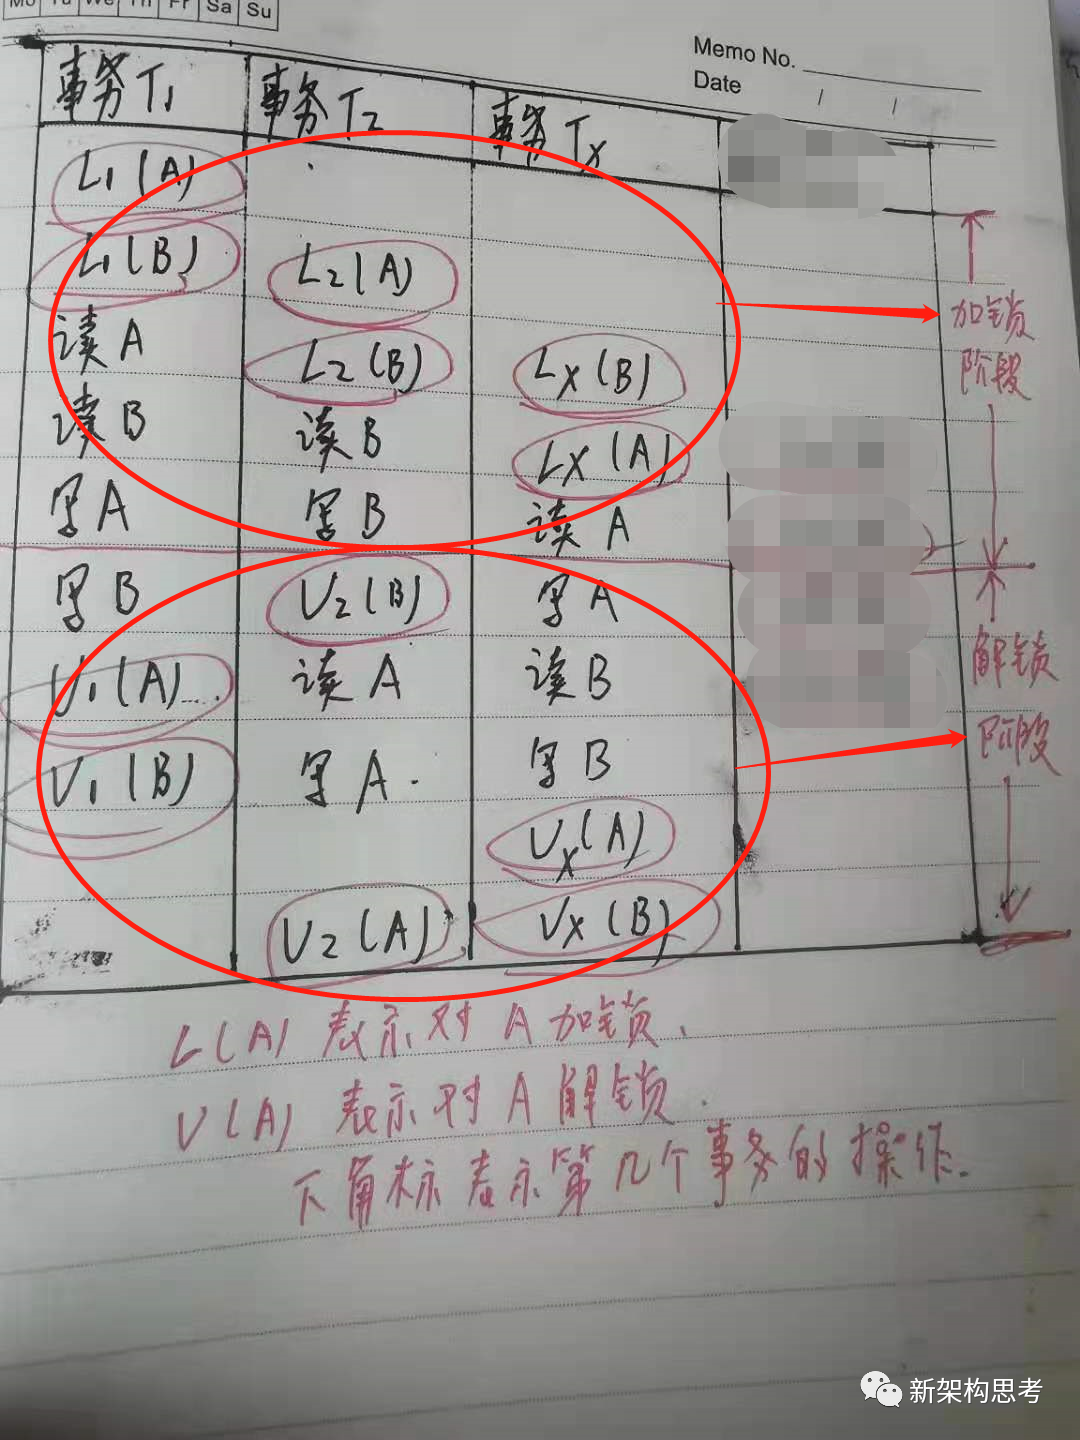 Mo Tu We Th Fr Sa Su
Memo No.
Date / /
事务T1 事务T2 事务Tx
L1(A)
L1(B) L2(A)
读A L2(B) Lx(B)
读B 读B Lx(A)
写A 写B 读A
写B U2(B) 写A
U1(A) 读A 读B
U1(B) 写A 写B
Ux(A)
U2(A) Ux(B)
加锁
阶段
解锁
阶段
L(A) 表示对A加锁、
U(A) 表示对A解锁.
下角标表示第几个事务的操作.
新架构思考